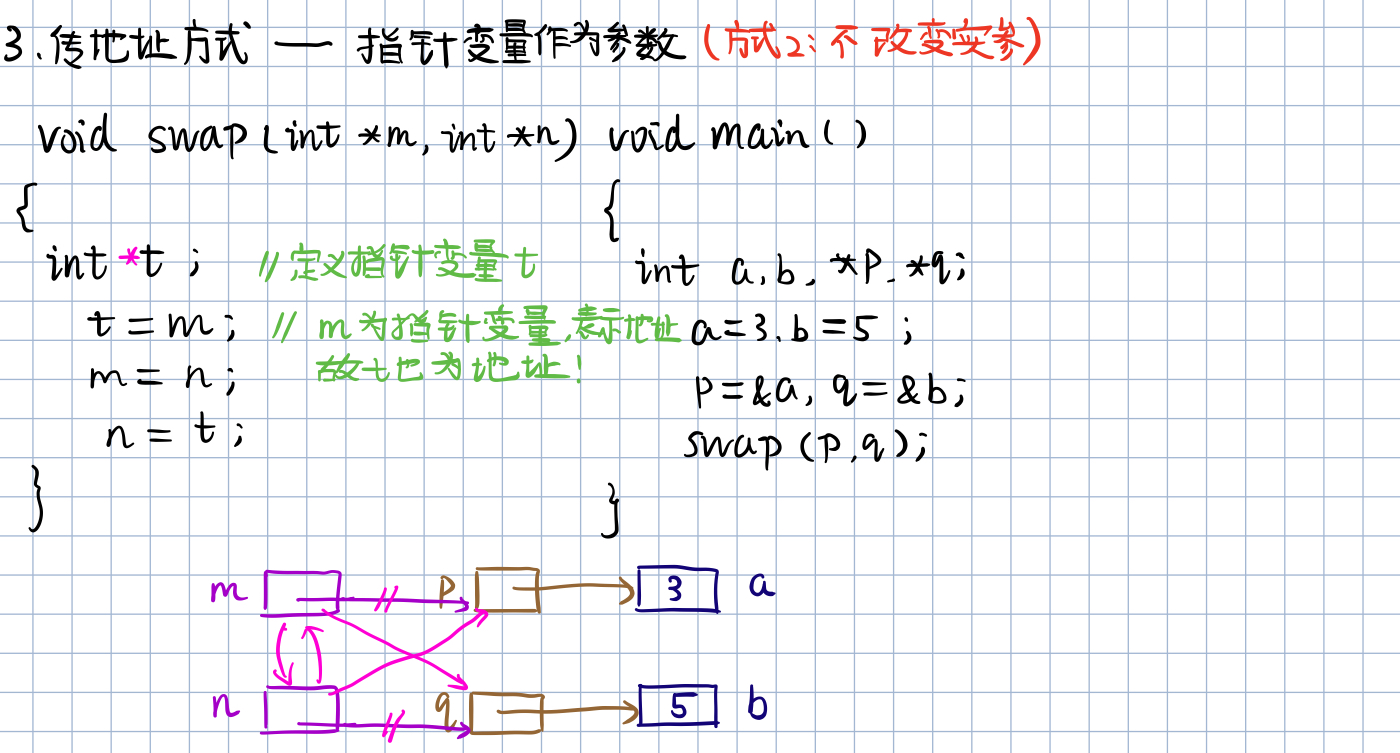 3.传地址方式 — 指针变量作为参数(方式2:不改变实参)
void swap(int *m, int *n)
{
int *t ; //定义指针变量t
t = m; // m为指针变量,表示地址
故t也为地址!
m = n;
n = t;
}
void main()
{
int a,b, *p, *q;
a=3, b=5 ;
p=&a, q=&b;
swap(p,q);
}
m p 3 a
n q 5 b